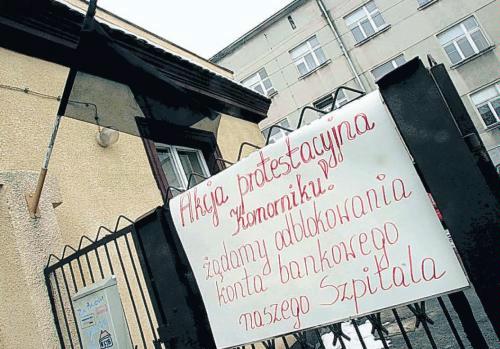 Akcja protestacyjna
Komorniku!
żądamy odblokowania
konta bankowego
naszego Szpitala